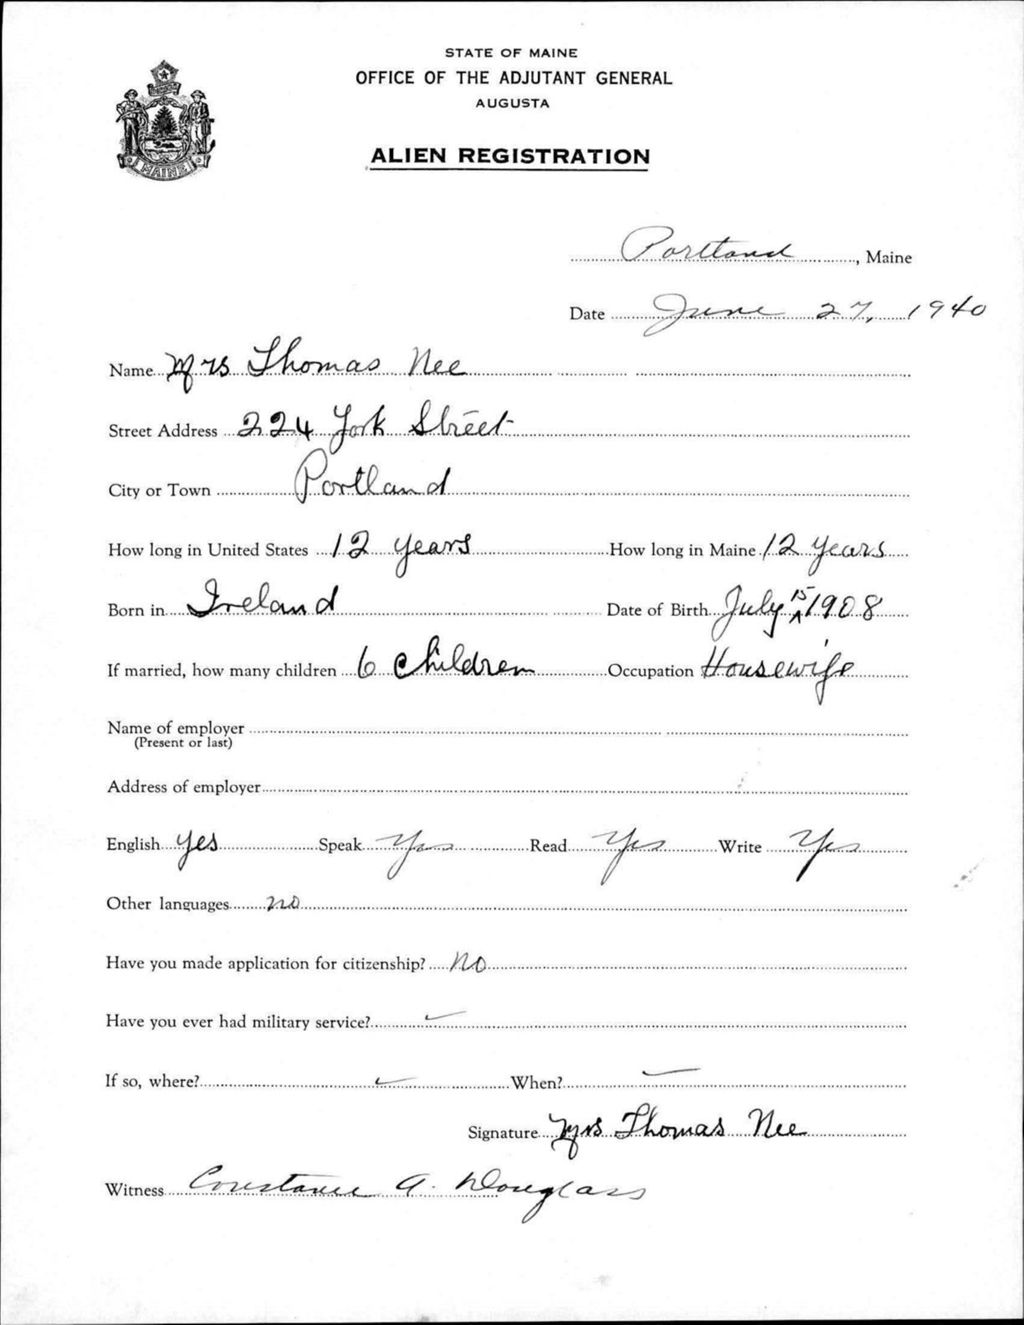 STATE OF MAINE
OFFICE OF THE ADJUTANT GENERAL
AUGUSTA
ALIEN REGISTRATION
MAINE
Portland, Maine
Date June 27, 1940
Name Mrs Thomas Nee
Street Address 224 York Street
City or Town Portland
How long in United States 12 years How long in Maine 12 years
Born in Ireland Date of Birth July 15 1908
If married, how many children 6 children Occupation Housewife
Name of employer
(Present or last)
Address of employer
English yes Speak Yes Read Yes Write Yes
Other languages no
Have you made application for citizenship? No
Have you ever had military service?
If so, where? When?
Signature Mrs Thomas Nee
Witness Constance A. Douglass